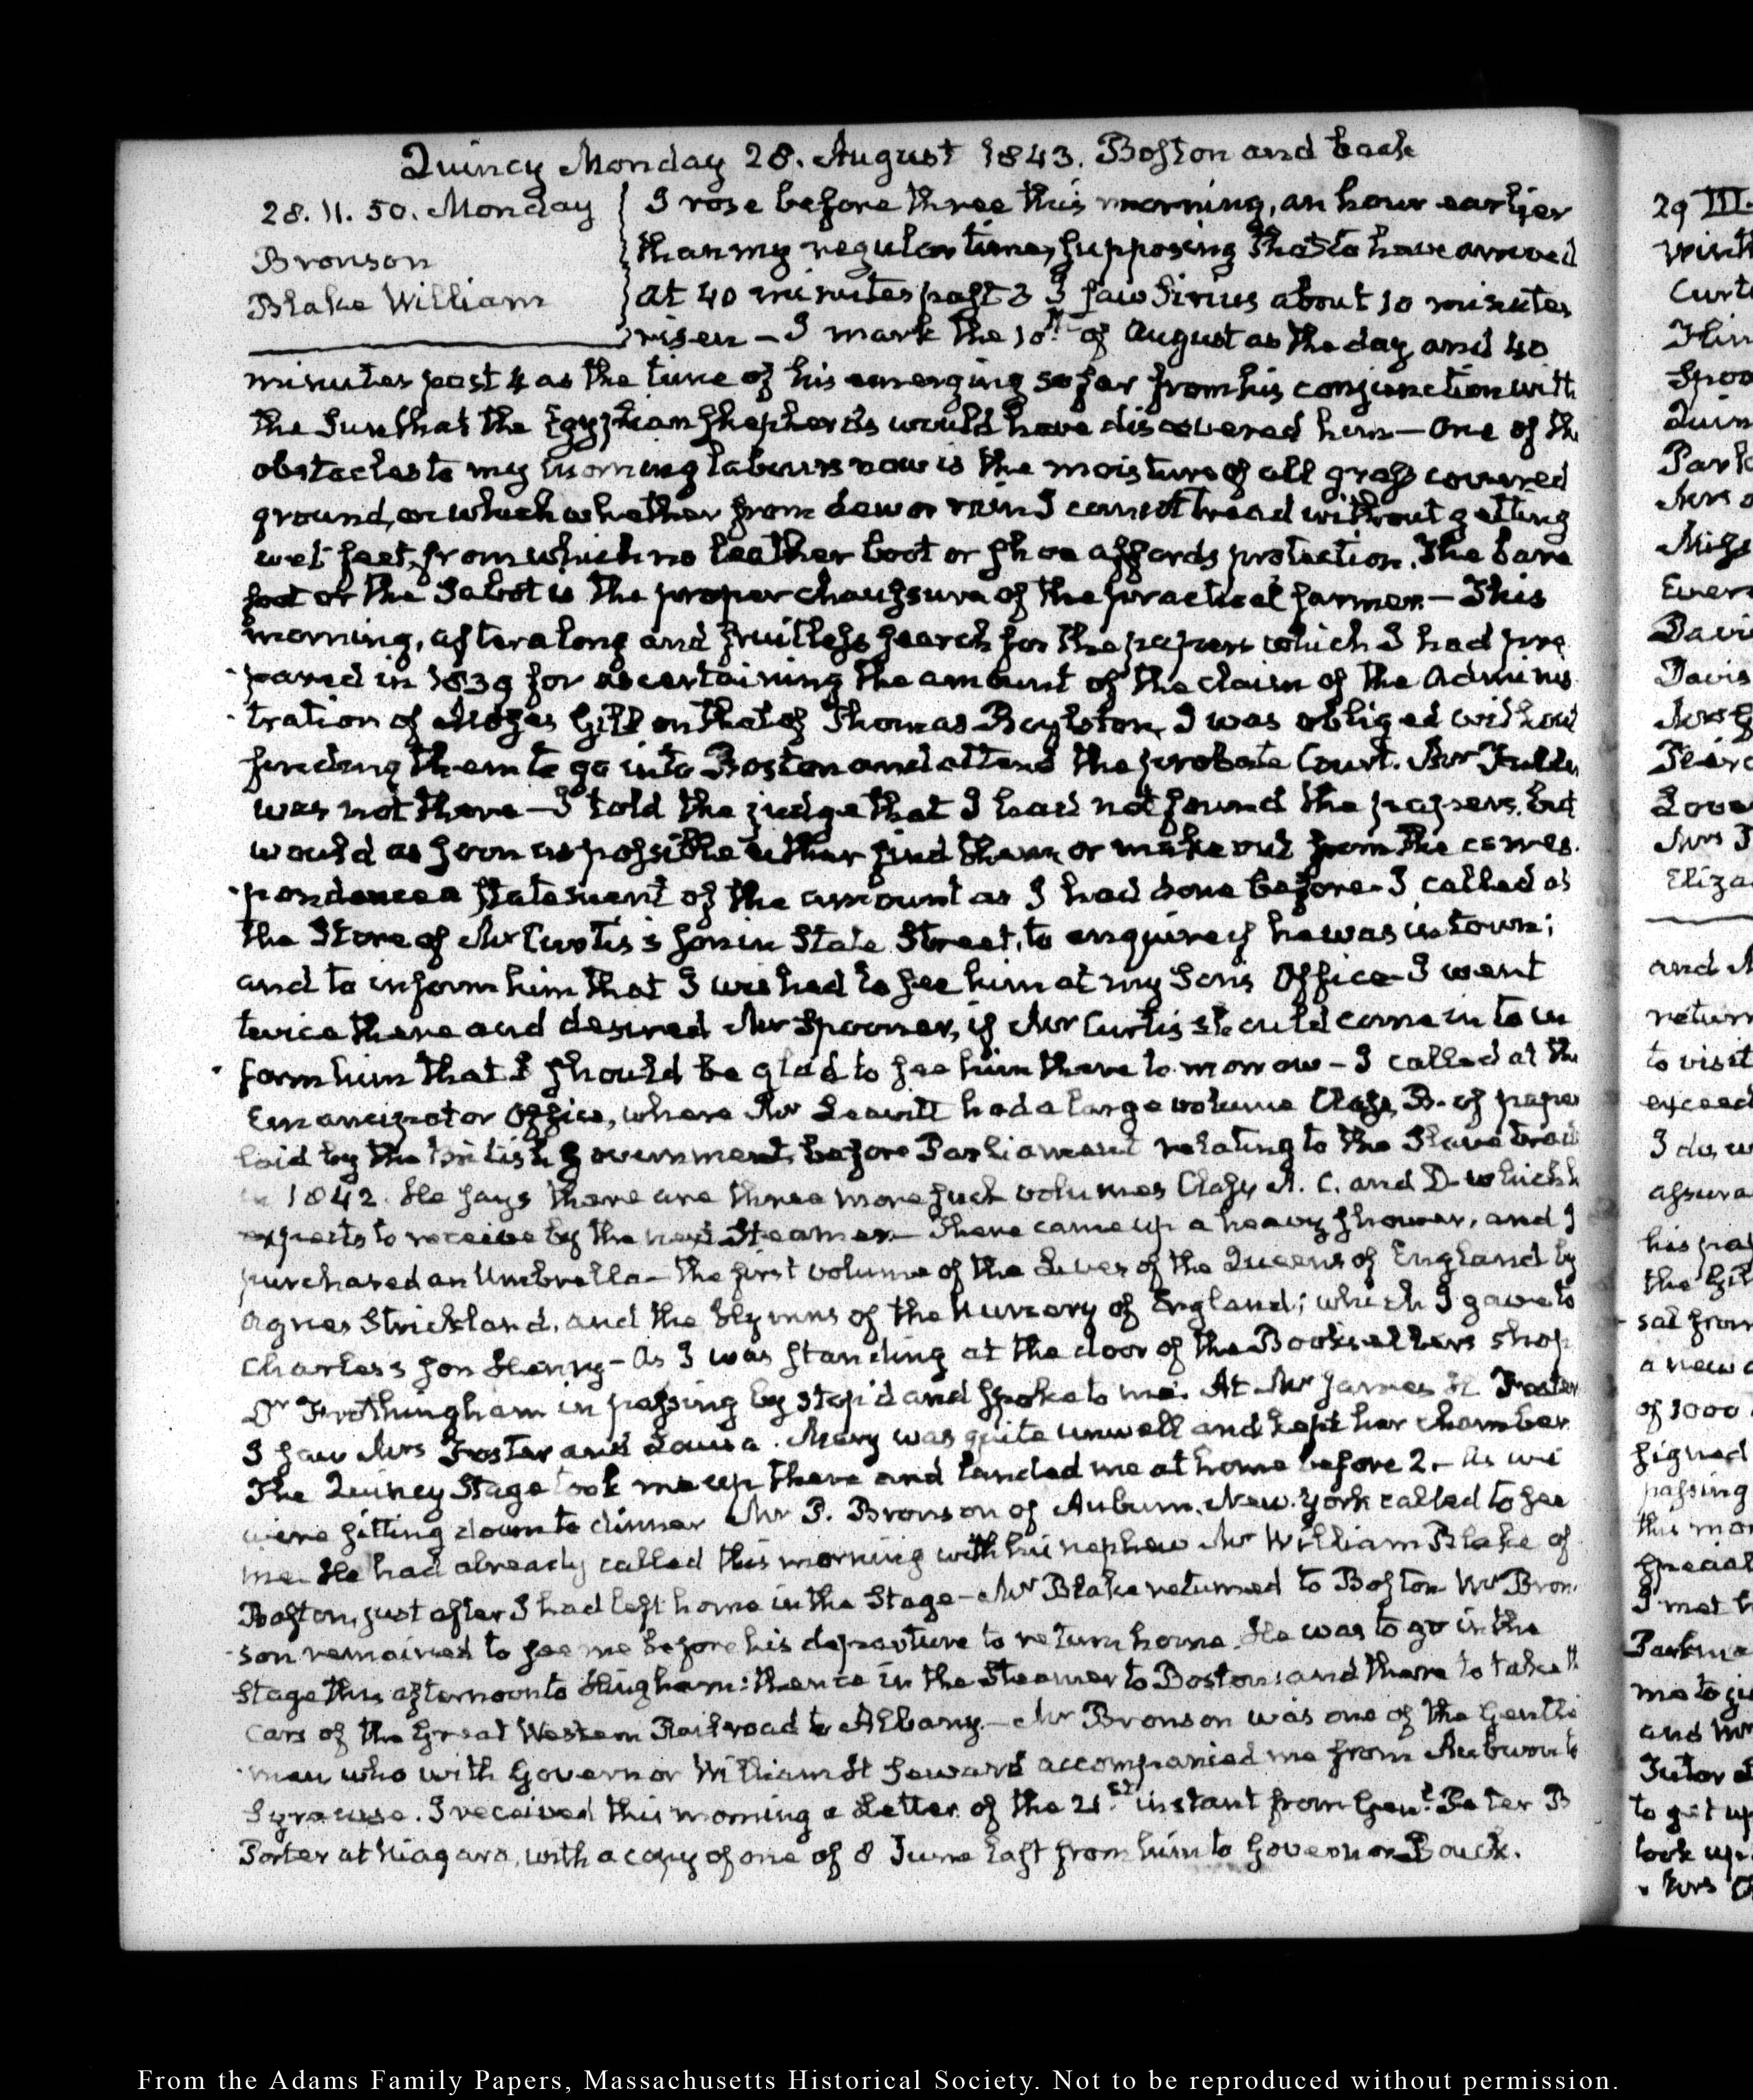 Quincy Monday 28. August 1843. Boston and back
28. 11. 50. Monday
Bronson
Blake William
I rose before three this morning, an hour earlier
than my regular time, supposing that to have arrived
at 40 minutes past 3 I saw Sirius about 10 minutes
risen — I mark the 10th of August as the day and 40
minutes past 4 as the time of his emerging so far from his conjunction with
the Sun that the Egyptian Shepherds would have discovered him — One of the
obstacles to my morning labours now is the moisture of all grass covered
ground, on which whether from dew or rain I cannot tread without getting
wet feet, from which no leather boot or shoe affords protection. The bare
foot or the Sabot is the proper chaussure of the practical farmer. — This
morning, after a long and fruitless search for the papers which I had pre
-pared in 1839 for ascertaining the amount of the claim of the Adminis
-tration of Moses Gill on that of Thomas Boylston, I was obliged without
finding them to go into Boston and attend the probate Court. Mr
was not there — I told the judge that I had not found the papers, but
would as soon as possible either find them or make out from the corres-
-pondence a statement of the amount as I had done before — I called at
the Store of Mr Curtis's son in State Street, to enquire if he was in town;
and to inform him that I wished to see him at my Sons Office — I went
twice there and desired Mr Spooner, if Mr Curtis should come in to in
-form him that I should be glad to see him there to-morrow — I called at the
Emancipator Office, where Mr Leavitt had a large volume Class, B. of paper
laid by the British Government, before Parliament relating to the Slave trade
in 1842. He says there are three more such volumes Class A. C. and D. which h
expects to receive by the next Steamer — There came up a heavy shower, and I
purchased an Umbrella — the first volume of the Lives of the Queens of England by
Agnes Strickland, and the Hymns of the Nursery of England; which I gave to
Charles's son Henry — As I was standing at the door of the Booksellers shop
Dr Frothingham in passing by stop'd and spoke to me. At Mr James H. Foster
I saw Mrs Foster and Louisa. Mary was quite unwell and kept her chamber
The Quincy Stage took me up there and landed me at home before 2. — As we
were sitting down to dinner Mr P. Bronson of Auburn, New-York called to see
me. He had already called this morning with his nephew Mr William Blake of
Boston, just after I had left home in the Stage — Mr Blake returned to Boston Mr Bron-
-son remained to see me before his departure to return home. He was to go in the
Stage this afternoon to Hingham: thence in the Steamer to Boston: and there to take th
Cars of the Great Western Railroad to Albany — Mr Bronson was one of the Gentle
-men who with Governor William H Seward accompanied me from Auburn to
Syracuse. I received this morning a Letter of the 21st instant from Genl. Peter B
Porter at Niagara, with a copy of one of 8 June last from him to Governor Bouck.
29 III.
and M
return
to visit
exceed
I do, w
assura
his pa
sat from
a new
of 1000
signed
passing
this mo
special
I met
me to
and Mr
Tutor
to get up
look up
From the Adams Family Papers, Massachusetts Historical Society. Not to be reproduced without permission.